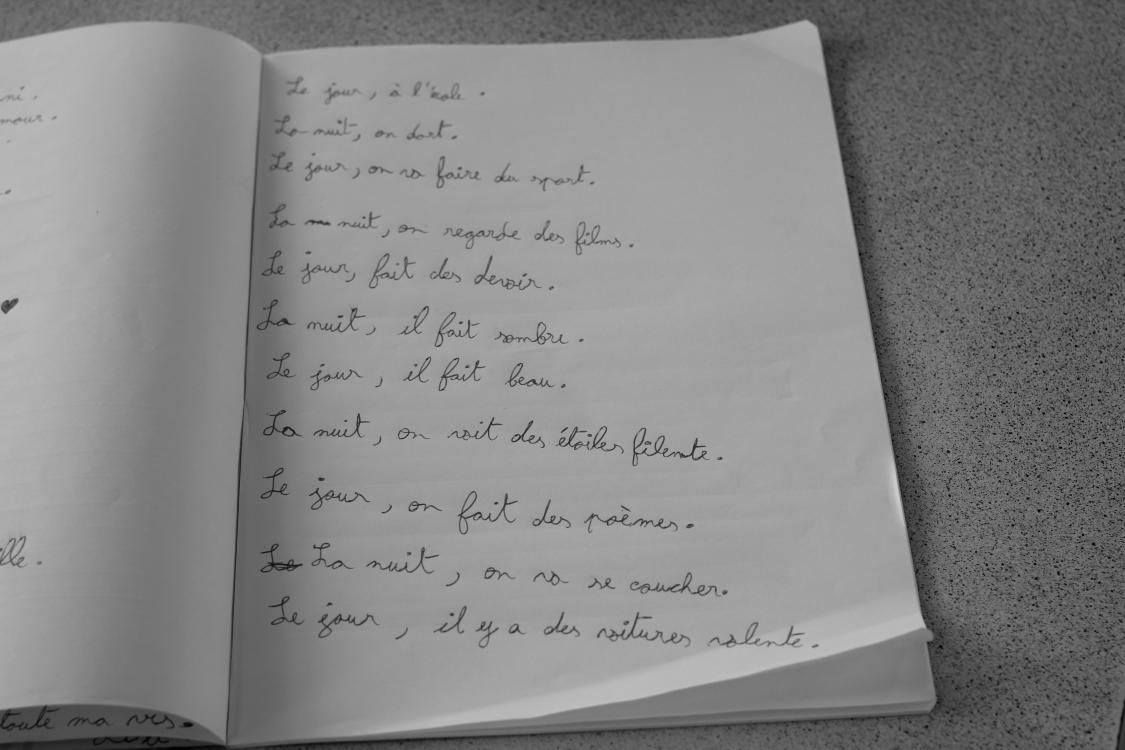 ni.
mour.
lle.
toute ma vis.
Le jour, à l'école.
La nuit, on dort.
Le jour, on va faire du sport.
La nuit, on regarde des films.
Le jour, fait des devoir.
La nuit, il fait sombre.
Le jour, il fait beau.
La nuit, on voit des étoiles filente.
Le jour, on fait des poèmes.
Le La nuit, on va se coucher.
Le jour, il y a des voitures volente.